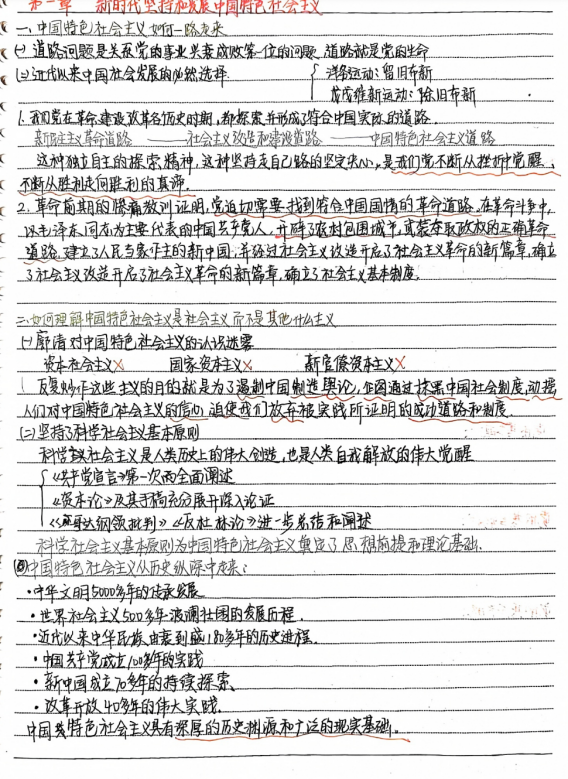 第一章 新时代坚持和发展中国特色社会主义
一、中国特色社会主义如何一路走来
(一) 道路问题是关系党的事业兴衰成败第一位的问题 道路就是党的生命
(二) 近代以来中国社会发展的必然选择 洋务运动：留旧布新
戊戌维新运动：除旧布新
1. 我们党在革命建设改革各历史时期，都探索并形成了符合中国实际的道路.
新民主主义革命道路——社会主义改造和建设道路——中国特色社会主义道路
这种独立自主的探索精神，这种坚持走自己路的坚定决心，是我们党不断从挫折中觉醒、
不断从胜利走向胜利的真谛.
2. 革命前期的惨痛教训证明，党迫切需要找到符合中国国情的革命道路，在革命斗争中，
以毛泽东同志为主要代表的中国共产党人，开辟了农村包围城市，武装夺取政权的正确革命
道路，建立了人民当家作主的新中国，并经过社会主义改造开启了社会主义革命的新篇章，确立
了社会主义改造开启了社会主义革命的新篇章，确立了社会主义基本制度.
二、如何理解中国特色社会主义是社会主义而不是其他什么主义
(一) 廓清对中国特色社会主义的认识迷雾
资本社会主义× 国家资本主义× 新官僚资本主义×
反复炒作这些主义的目的就是为了遏制中国制造舆论，企图通过抹黑中国社会制度，动摇
人们对中国特色社会主义的信心 迫使我们放弃被实践所证明的成功道路和制度.
(二) 坚持了科学社会主义基本原则
科学社会主义是人类历史上的伟大创造，也是人类自我解放的伟大觉醒
《共产党宣言》第一次而全面阐述
《资本论》及其手稿充分展开深入论证
《哥达纲领批判》《反杜林论》进一步总结和阐述
科学社会主义基本原则为中国特色社会主义奠定了思想前提和理论基础.
中国特色社会主义从历史纵深中走来：
·中华文明5000多年的传承发展
·世界社会主义500多年波澜壮阔的发展历程.
·近代以来中华民族由衰到盛180多年的历史进程.
·中国共产党成立100多年的实践
·新中国成立70多年的持续探索、
·改革开放40多年的伟大实践.
中国特色社会主义具有深厚的历史渊源和广泛的现实基础。